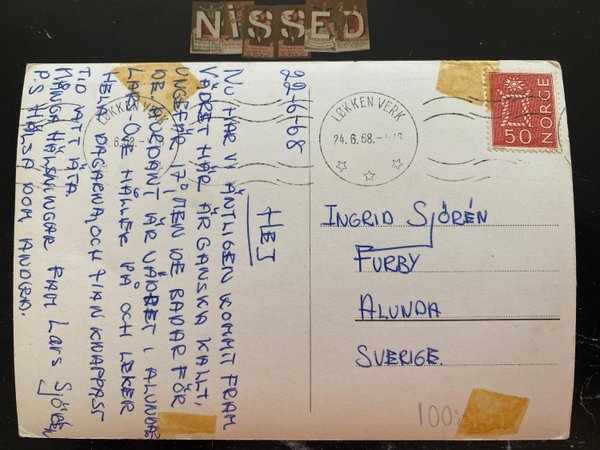 NISSED
22-6-68
HEJ
NU HAR VI ÄNTLIGEN KOMMIT FRAM
VÄDET HÄR ÄR GANSKA KALLT,
UNGEFÄR 7° MEN DE BADAR FÖR
DE. HURUDANT ÄR VÄDRET I ALUNDA
LARS-OVE HÅLLER PÅ OCH LEKER
HELA DAGARNA, OCH KNAPPAST
TID ATT ÄTA.
MÅNGA HÄLSNINGAR FRAM Lars Sjörén
P.S HÄLSA DOM ANDRA.
LØKKEN VERK
6.68
LØKKEN VERK
24.6.68.
NORGE
50
INGRID SJÖRÉN
FURBY
ALUNDA
SVERIGE.
100:-